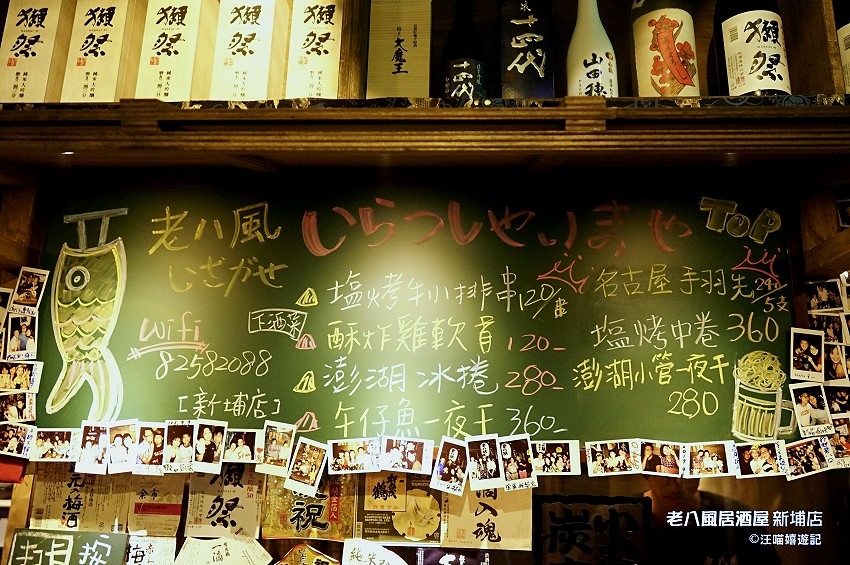 獺祭
獺祭
獺祭
獺祭
獺祭
大魔王
十四代
十四代
山田穂
獺祭
老八風
いざがせ
いらっしゃいませ
TOP
wifi
82582088
[新埔店]
下酒菜
塩烤牛小排串120/串
酥炸雞軟骨 120-
澎湖冰捲 280-
午仔魚一夜干 360-
名古屋手羽先240/5支
塩烤中卷 360
澎湖小管一夜干
280
梅酒
獺祭
祝
鶴
魂
老八風居酒屋 新埔店
©汪喵嬉遊記